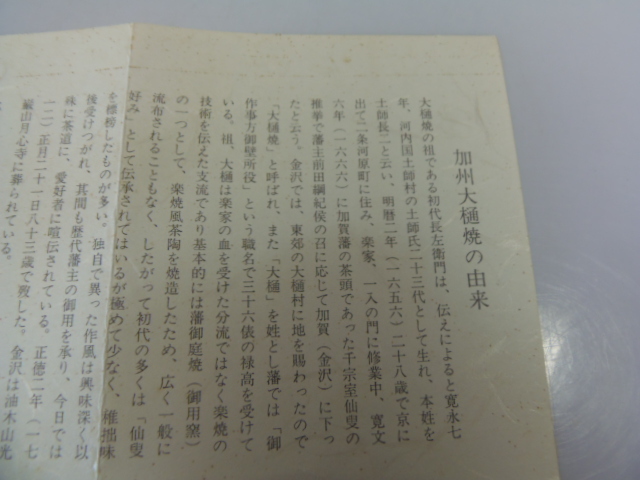 加州大樋焼の由来
大樋焼の祖である初代長左衛門は、伝えによると寛永七
年、河内国土師村の土師氏二十三代として生れ、本姓を
土師長二と云い、明暦二年（一六五六）二十八歳で京に
出て二条河原町に住み、楽家、一入の門に修業中、寛文
六年（一六六六）に加賀藩の茶頭であった千宗室仙叟の
推挙で藩主前田綱紀侯の召に応じて加賀（金沢）に下っ
たと云う。金沢では、東郊の大樋村に地を賜わったので
「大樋焼」と呼ばれ、また「大樋」を姓とし藩では「御
作事方御壁所役」という職名で三十六俵の禄高を受けて
いる。祖、大樋は楽家の血を受けた分流ではなく楽焼の
技術を伝えた支流であり基本的には藩御庭焼（御用窯）
の一つとして、楽焼風茶陶を焼造したため、広く一般に
流布されることもなく、したがって初代の多くは「仙叟
好み」として伝承されてはいるが極めて少なく、稚拙味
を標榜したものが多い。独自で異った作風は興味深く以
後受けつがれ、其間も歴代藩主の御用を承り、今日では
殊に茶道に、愛好者に喧伝されている。正徳二年（一七
一二）正月二十一日八十三歳で歿した。金沢は油木山光
巌山月心寺に葬られている。